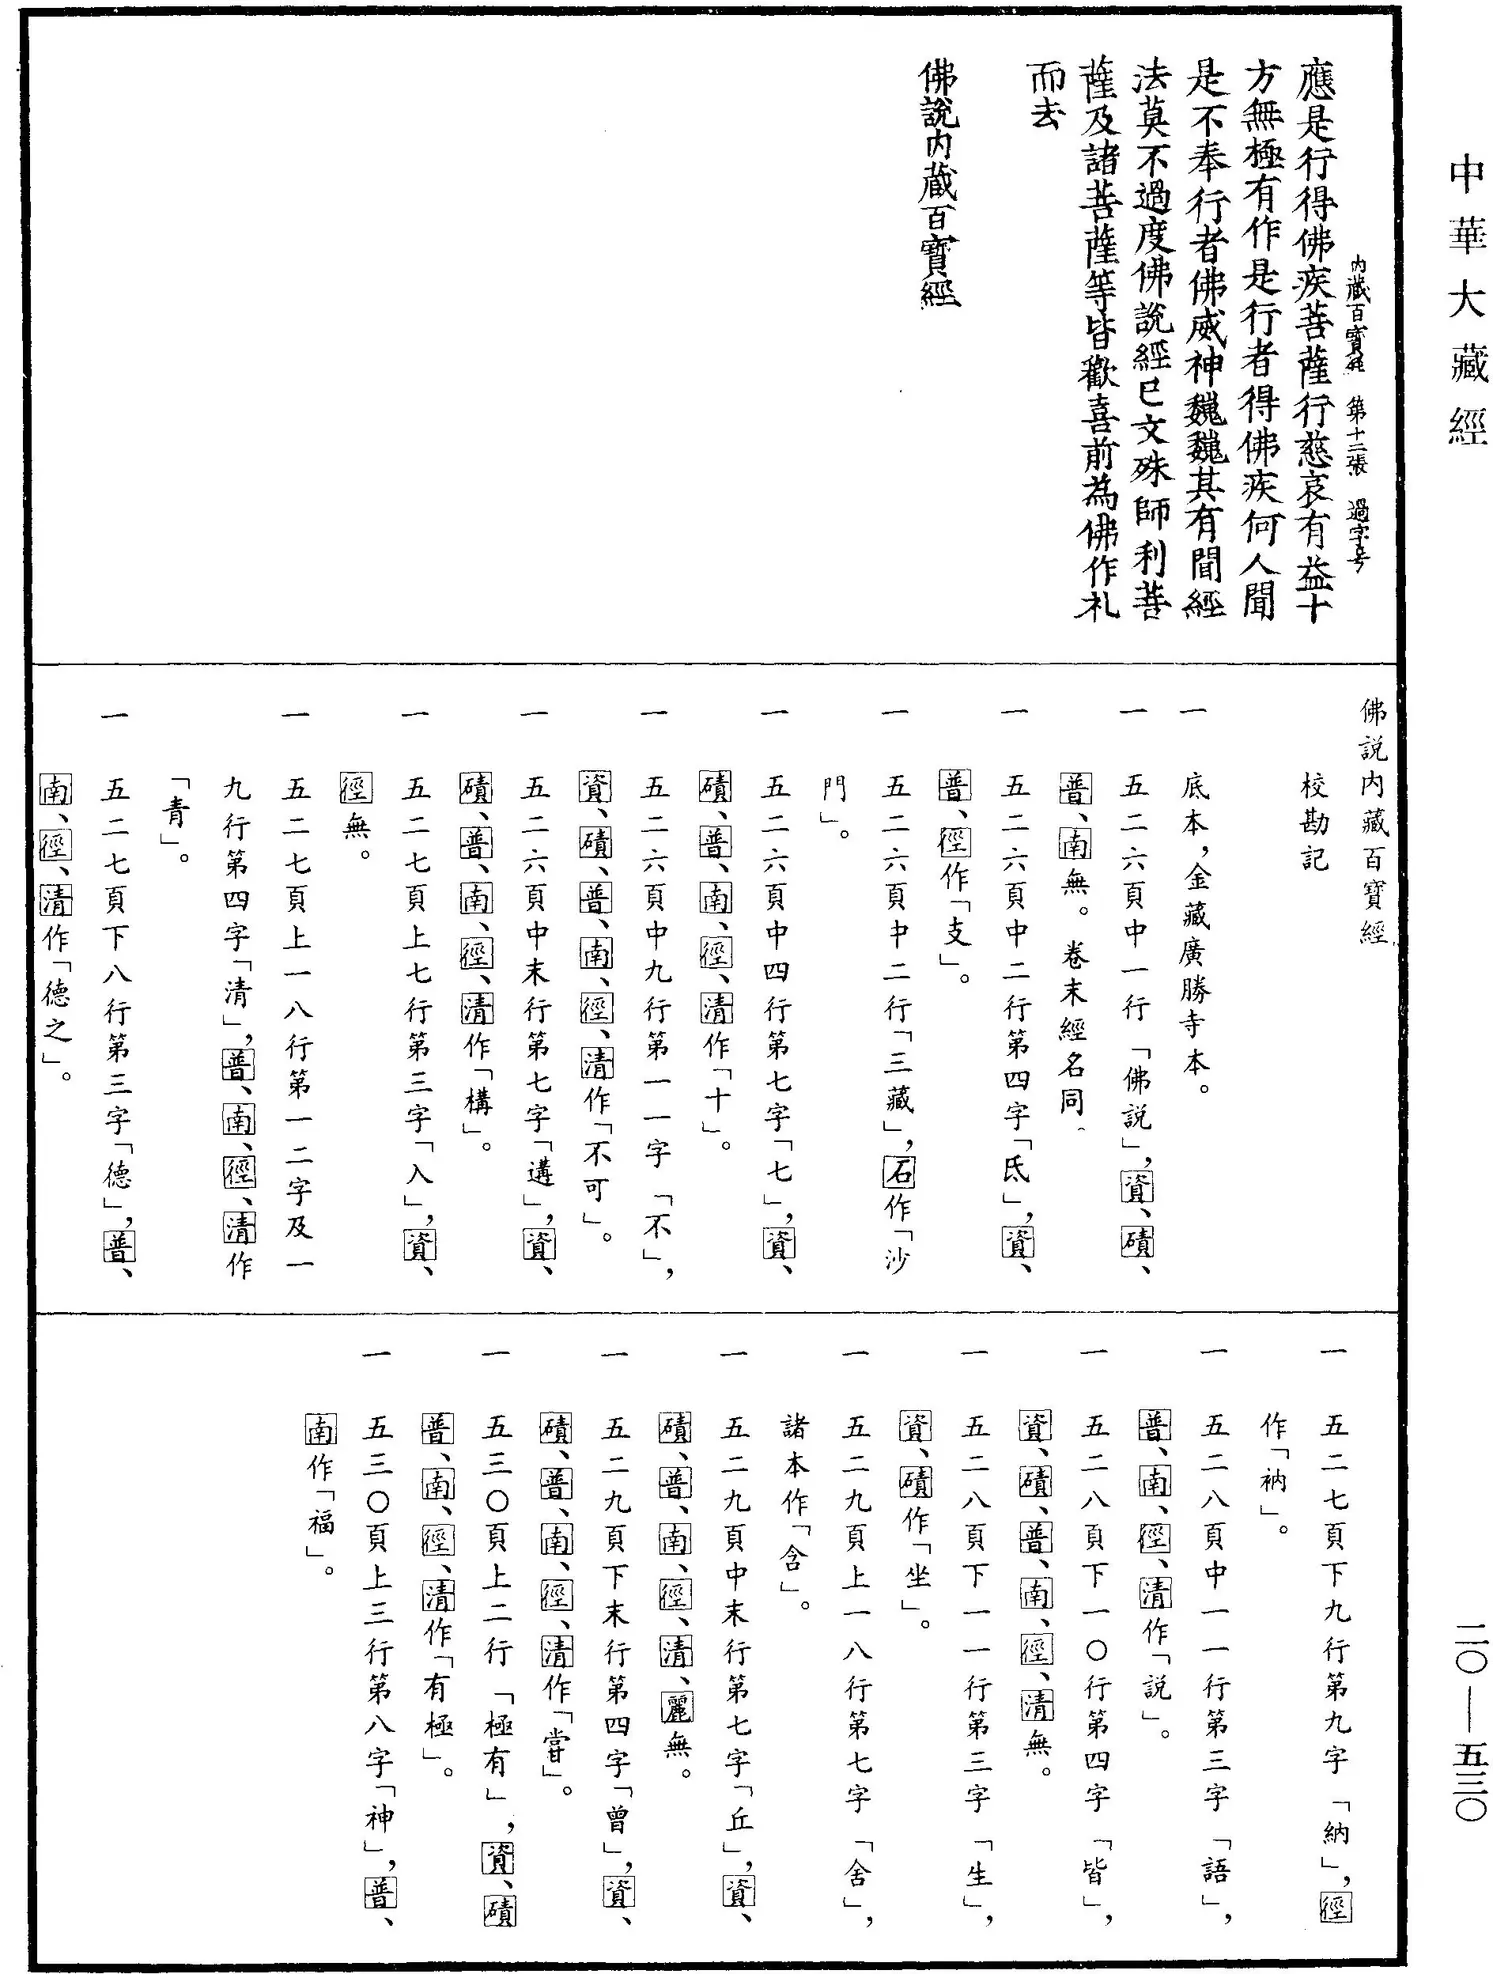 中華大藏經
內藏百寶經 第十二張 過字号
應是行得佛疾菩薩行慈哀有益十
方無極有作是行者得佛疾何人聞
是不奉行者佛威神巍巍其有聞經
法莫不過度佛說經已文殊師利菩
薩及諸菩薩等皆歡喜前為佛作礼
而去
佛說內藏百寶經
佛說內藏百寶經
校勘記
一 底本，金藏廣勝寺本。
一 五二六頁中一行「佛說」，資、磧、
普、南無。卷末經名同。
一 五二六頁中二行第四字「氐」，資、
普、徑作「支」。
一 五二六頁中二行「三藏」，石作「沙
門」。
一 五二六頁中四行第七字「七」，資、
磧、普、南、徑、清作「十」。
一 五二六頁中九行第一一字「不」，
資、磧、普、南、徑、清作「不可」。
一 五二六頁中末行第七字「遘」，資、
磧、普、南、徑、清作「構」。
一 五二七頁上七行第三字「入」，資、
徑無。
一 五二七頁上一八行第一二字及一
九行第四字「清」，普、南、徑、清作
「青」。
一 五二七頁下八行第三字「德」，普、
南、徑、清作「德之」。
一 五二七頁下九行第九字「納」，徑
作「衲」。
一 五二八頁中一一行第三字「語」，
普、南、徑、清作「說」。
一 五二八頁下一〇行第四字「皆」，
資、磧、普、南、徑、清無。
一 五二八頁下一一行第三字「生」，
資、磧作「坐」。
一 五二九頁上一八行第七字「舍」，
諸本作「含」。
一 五二九頁中末行第七字「丘」，資、
磧、普、南、徑、清、麗無。
一 五二九頁下末行第四字「曾」，資、
磧、普、南、徑、清作「嘗」。
一 五三〇頁上二行「極有」，資、磧
普、南、徑、清作「有極」。
一 五三〇頁上三行第八字「神」，普、
南作「福」。
二〇—五三〇